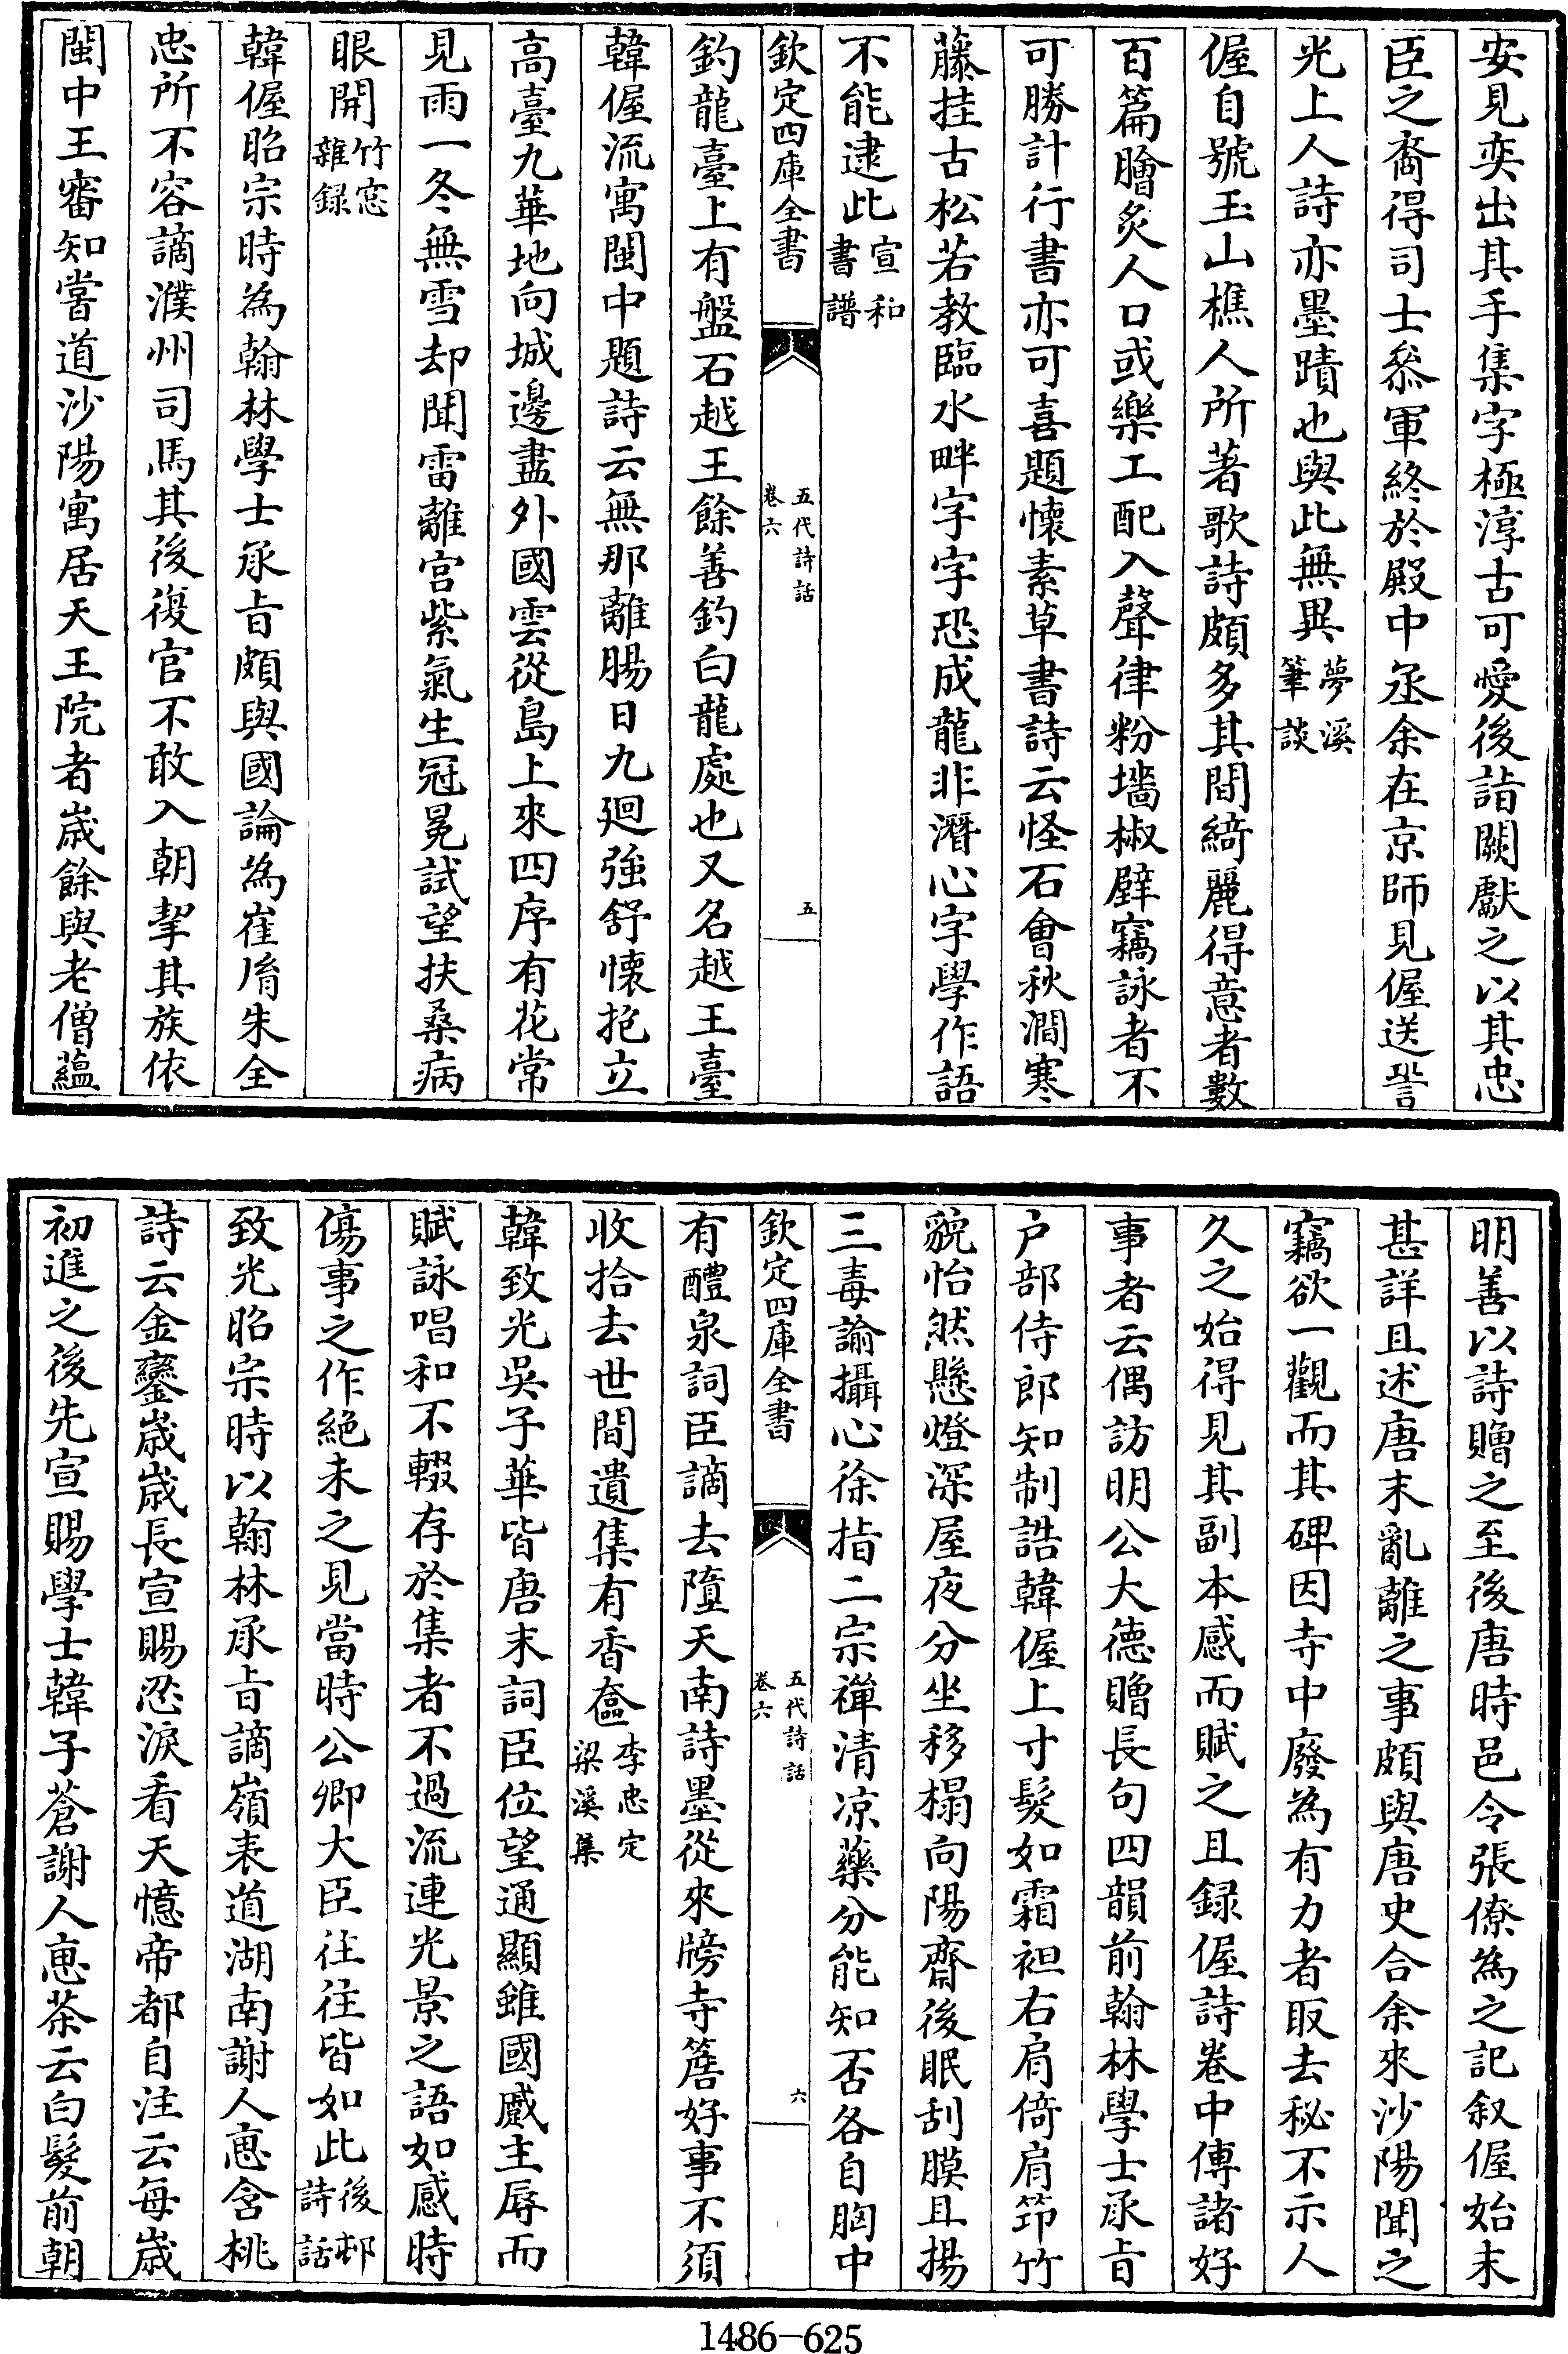 安見奕出其手集字極淳古可愛後詣闕獻之以其忠
臣之裔得司士叅軍終於殿中丞余在京師見偓送䛒
光上人詩亦墨蹟也與此無異夢溪筆談
偓自號玉山樵人所著歌詩頗多其間綺麗得意者數
百篇膾炙人口或樂工配入聲律粉墻椒壁竊詠者不
可勝計行書亦可喜題懷素草書詩云怪石會秋澗寒
藤挂古松若教臨水畔字字恐成龍非潛心字學作語
不能逮此宣和書譜
欽定四庫全書
五代詩話
卷六
五
釣龍臺上有盤石越王餘善釣白龍處也又名越王臺
韓偓流寓閩中題詩云無那離腸日九迴強舒懷抱立
高臺九華地向城邊盡外國雲從島上來四序有花常
見雨一冬無雪却聞雷離宮紫氣生冠冕試望扶桑病
眼開竹窓雜録
韓偓昭宗時為翰林學士承㫖頗與國論為崔𦙍朱全
忠所不容謫濮州司馬其後復官不敢入朝挈其族依
閩中王審知嘗道沙陽寓居天王院者嵗餘與老僧藴
明善以詩贈之至後唐時邑令張僚為之記叙偓始末
甚詳且述唐末亂離之事頗與唐史合余來沙陽聞之
竊欲一觀而其碑因寺中廢為有力者取去秘不示人
久之始得見其副本感而賦之且録偓詩卷中傳諸好
事者云偶訪明公大德贈長句四韻前翰林學士承㫖
户部侍郎知制誥韓偓上寸髮如霜袒右肩倚肩筇竹
貌怡然懸燈深屋夜分坐移榻向陽齋後眠刮膜且揚
三毒諭攝心徐指二宗禪清凉藥分能知否各自胸中
欽定四庫全書
五代詩話
卷六
六
有醴泉詞臣謫去墮天南詩墨從來牓寺簷好事不須
收拾去世間遺集有香奩李忠定梁溪集
韓致光吳子華皆唐末詞臣位望通顯雖國蹙主辱而
賦詠唱和不輟存於集者不過流連光景之語如感時
傷事之作絶未之見當時公卿大臣往往皆如此後邨詩話
致光昭宗時以翰林承㫖謫嶺表道湖南謝人恵含桃
詩云金鑾嵗嵗長宣賜忍淚看天憶帝都自注云每嵗
初進之後先宣賜學士韓子蒼謝人恵茶云白髮前朝
1486-625